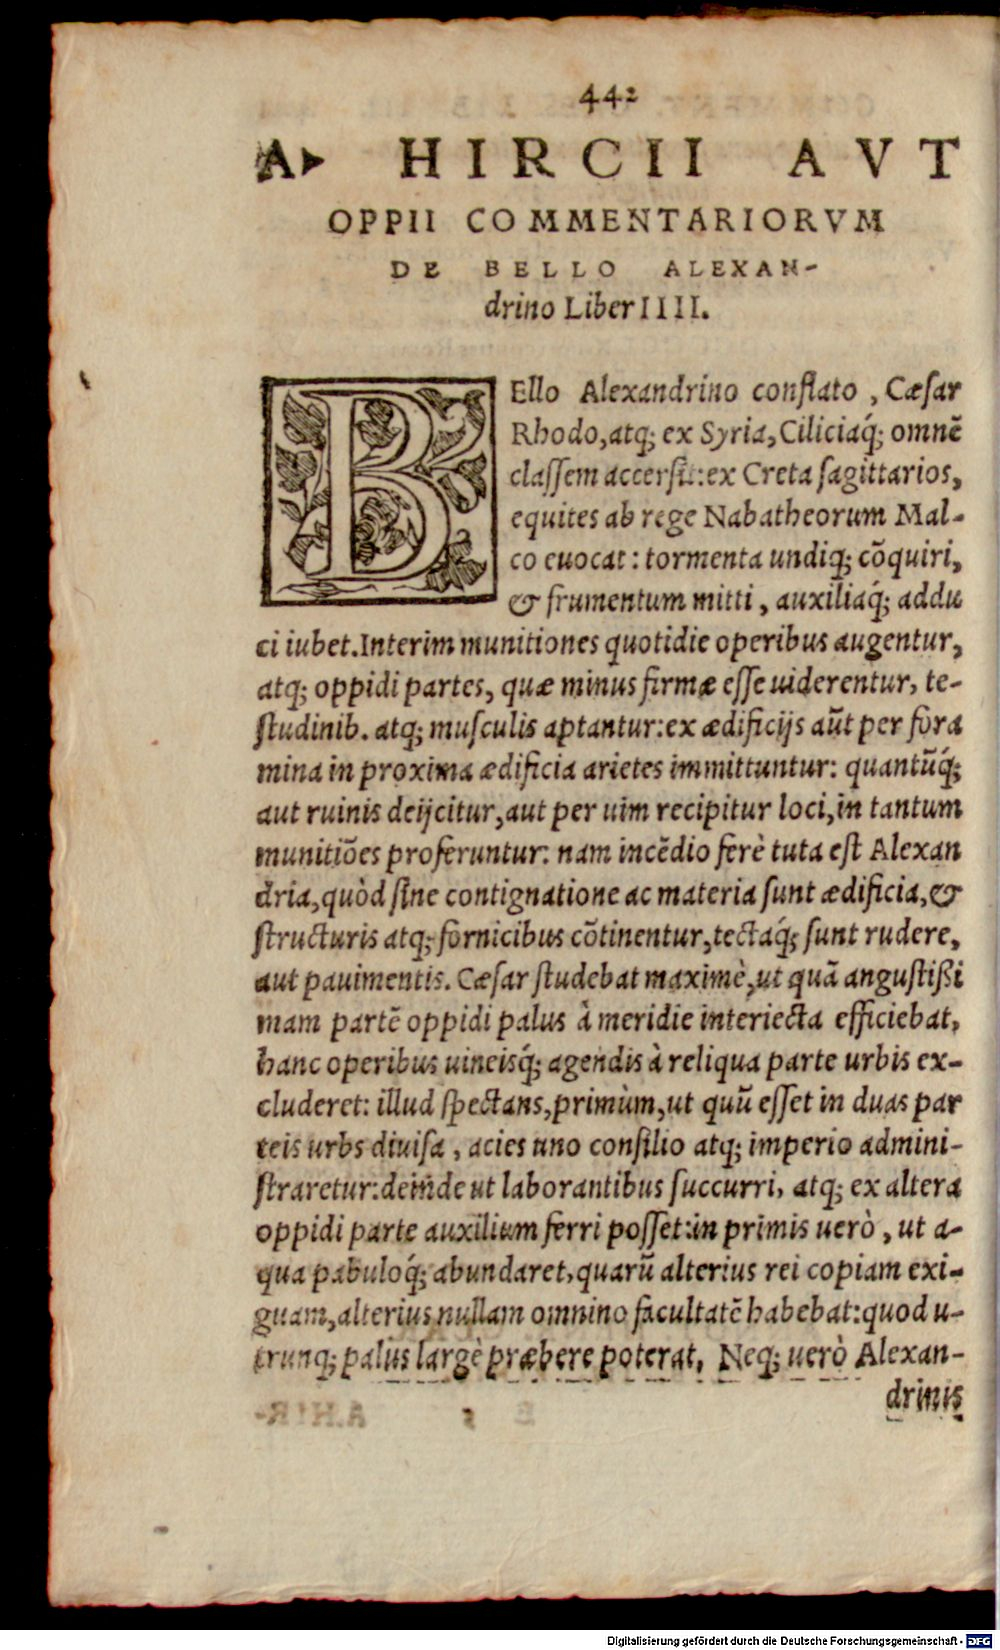 442
A▸ HIRCII AVT
OPPII COMMENTARIORVM
DE BELLO ALEXAN-
drino Liber IIII.
BEllo Alexandrino conflato, Cæſar
Rhodo, atq; ex Syria, Ciliciaq́; omnẽ
claſſem accerſit: ex Creta ſagittarios,
equites ab rege Nabatheorum Mal-
co euocat: tormenta undiq; cõquiri,
& frumentum mitti, auxiliaq́; addu
ci iubet. Interim munitiones quotidie operibus augentur,
atq; oppidi partes, quæ minus firmæ eſſe uiderentur, te-
ſtudinib. atq; muſculis aptantur: ex ædificijs aũt per fora
mina in proxima ædificia arietes immittuntur: quantũq́;
aut ruinis deijcitur, aut per uim recipitur loci, in tantum
munitiões proferuntur: nam incẽdio ferè tuta eſt Alexan
dria, quòd ſine contignatione ac materia ſunt ædificia, &
ſtructuris atq; fornicibus cõtinentur, tectaq́; ſunt rudere,
aut pauimentis. Cæſar ſtudebat maximè, ut quã anguſtißi
mam partẽ oppidi palus à meridie interiecta efficiebat,
hanc operibus uineisq́; agendis à reliqua parte urbis ex-
cluderet: illud ſpectans, primùm, ut quũ eſſet in duas par
teis urbs diuiſa, acies uno conſilio atq; imperio admini-
ſtraretur: deinde ut laborantibus ſuccurri, atq; ex altera
oppidi parte auxilium ferri poſſet: in primis uerò, ut a-
qua pabuloq́; abundaret, quarũ alterius rei copiam exi-
guam, alterius nullam omnino facultatẽ habebat: quod u-
trunq; palus largè præbere poterat. Neq; uerò Alexan-
drinis
Digitalisierung gefördert durch die Deutsche Forschungsgemeinschaft - DFG